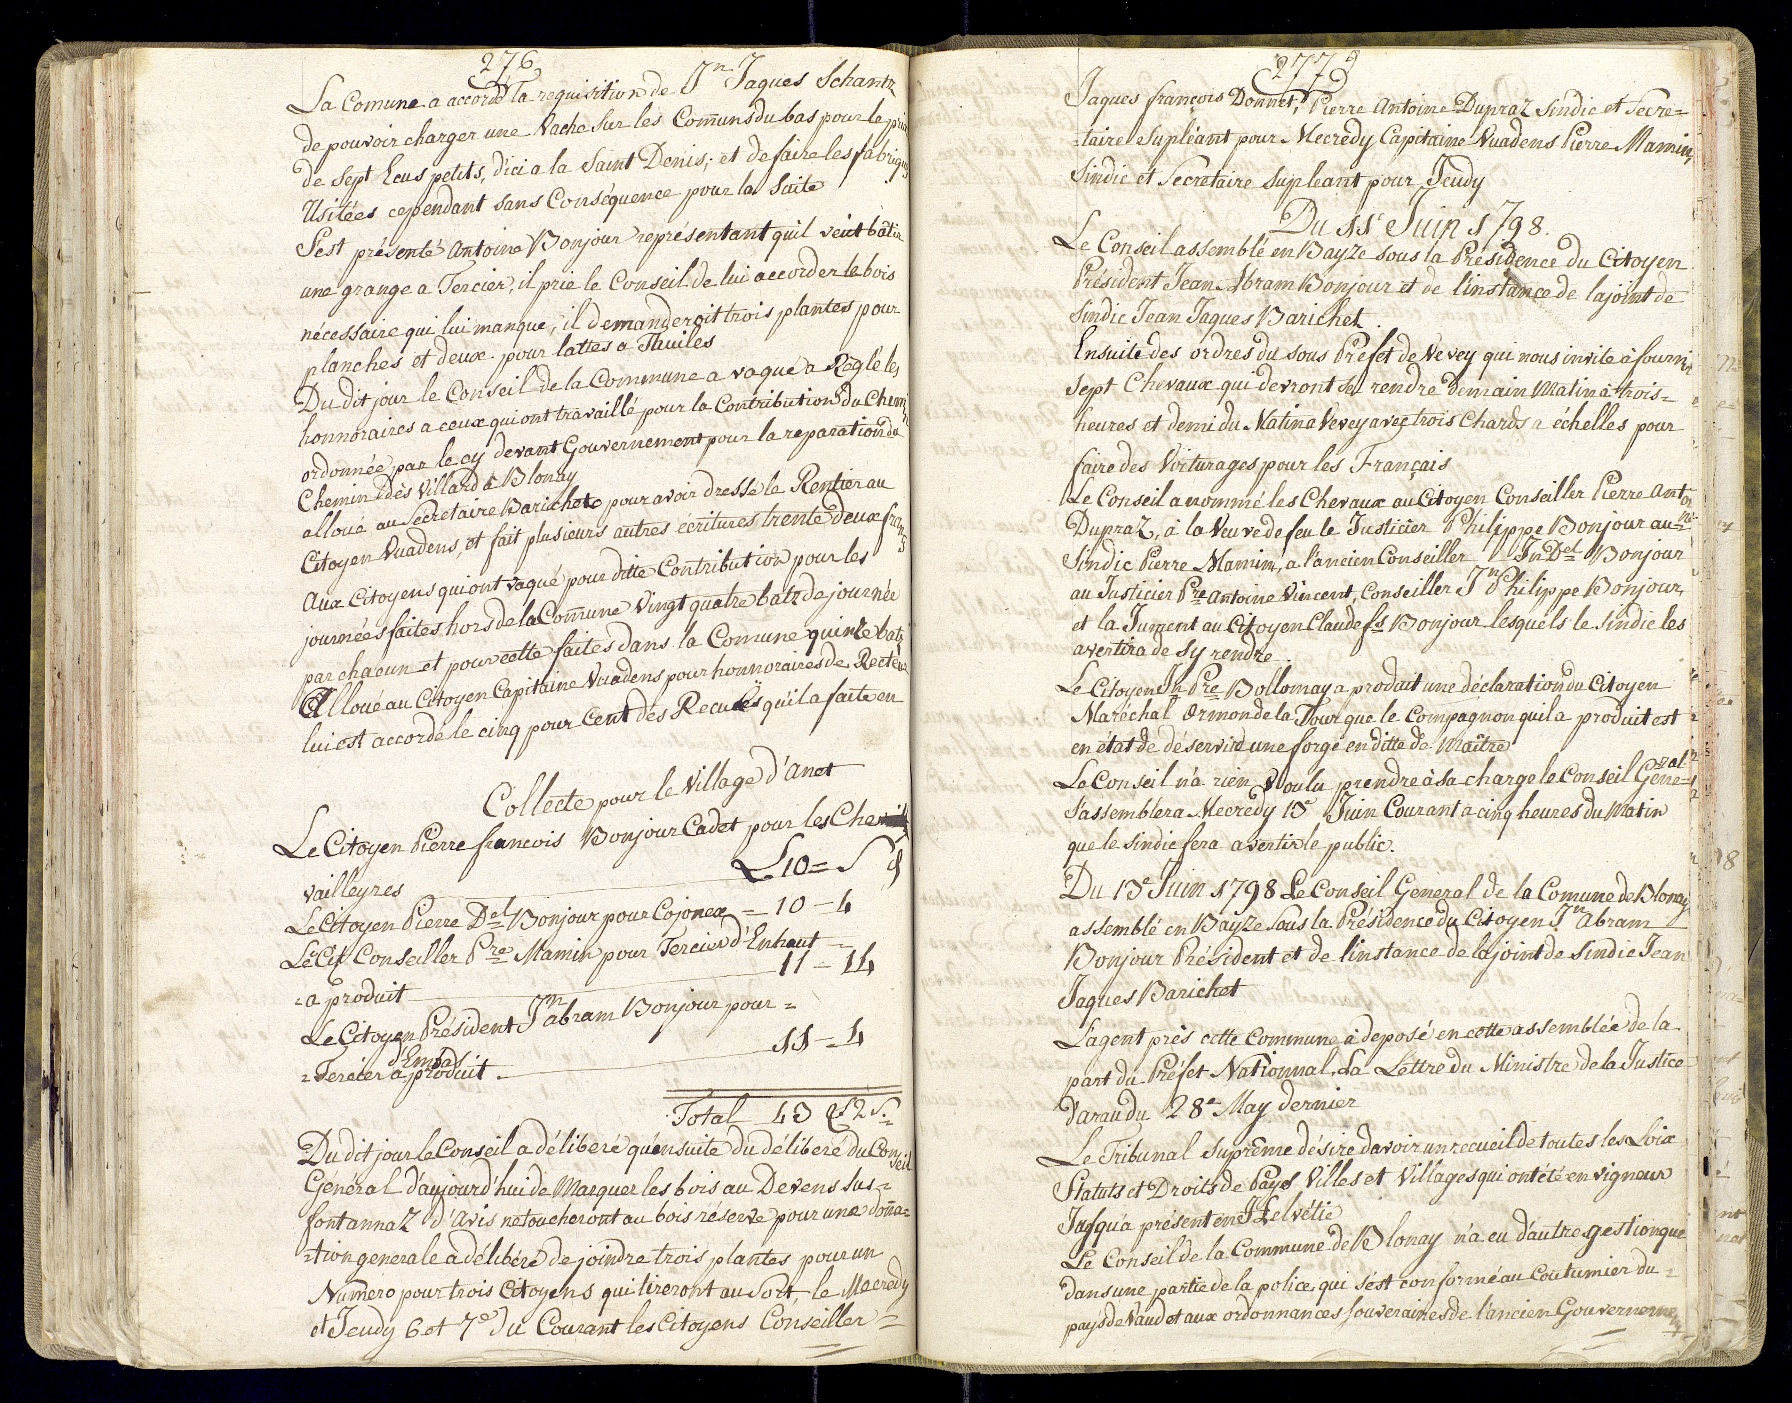 276
La Comune a accordé la requisition de Jn Jaques Schantz
de pouvoir charger une Vache sur les Comuns du bas pour le prix
de sept Ecus petits, d'ici a la Saint Denis; et de faire les fabriques
Usitées cependant sans Conséquence pour la suite
S'est présenté Antoine Bonjour représentant quil veut bâtir
une grange a Tercier, il prie le Conseil de lui accorder le bois
nécessaire qui lui manque, il demanderoit trois plantes pour
planches et deux pour lattes a Thuiles
Du dit jour le Conseil de la Commune a vaqué a Règlé les
honnoraires a ceux qui ont travaillé pour la Contribution du Chemin
ordonnée par le cy devant Gouvernement pour la reparation du
Chemin dès Villard à Blonay
alloué au Secretaire Barichet pour avoir dressé le Rentier au
Citoyen Vuadens, et fait plusieurs autres écritures trente deux francs
Aux Citoyens qui ont vaqué pour ditte Contribution pour les
journées faites hors de la Comune Vingt quatre batz de journée
par chacun et pour cette faites dans la Comune quinze batz
Alloué au Citoyen Capitaine Vuadens pour honnoraires de Recteur
lui est accordé le cinq pour Cent des Recues qu'il a faite en
Collecte pour le Village d'Anet
Le Citoyen Pierre francois Bonjour Cadet pour les Chevill
vailleyres L 10 = S 9
Le Citoyen Pierre Del Bonjour pour Cojonex = 10 - 4
Le Cit Conseiller Pre Mamin pour Tercier d'Enhaut =
= a produit 11 - 14
Le Citoyen Président Jn abram Bonjour pour =
d'Embas
= Tercier a produit. 11 - 4
Total 43 L 2 S.
Du dit jour le Conseil a déliberé qu'ensuite du déliberé du Conseil
Général d'aujourd'hui de Marquer les bois au Devens sus =
fontannaz d'Avis ne toucheront au bois réserve pour une dona =
= tion generale a délibéré de joindre trois plantes pour un
Numéro pour trois Citoyens qui tireront au Sort, le Mecredy
et Jeudy 6 et 7e du Courant les Citoyens Conseiller =
277
Jaques françois Donnet, Pierre Antoine Dupraz Sindic et Secre =
= taire Supléant pour Mecredy Capitaine Vuadens Pierre Mamin,
Sindic et Secretaire Supleant pour Jeudy
Du 11e Juin 1798.
Le Conseil assemblé en Bayze sous la Présidence du Citoyen
Président Jean Abram Bonjour et de l'instance de lajoint de
Sindic Jean Jaques Barichet.
Ensuite des ordres du sous Préfet de Vevey qui nous invite à fournir
sept Chevaux qui devront se rendre demain Matin à trois =
heures et demi du Matin a Vevey avec trois Chards a échelles pour
faire des Voiturages pour les Français
Le Conseil a nommé les Chevaux au Citoyen Conseiller Pierre Antoine
Dupraz, à la Veuve de feu le Justicier Philippe Bonjour au =
Sindic Pierre Mamin, a l'ancien Conseiller Jn Del Bonjour
au Justicier Pre Antoine Vincent, Conseiller Jn Philippe Bonjour,
et la Jument au Citoyen Claude fs Bonjour lesquels le Sindic les
avertira de s'y rendre.
Le Citoyen Jn Pre Bollomay a produit une déclaration du Citoyen
Maréchal Ormond de la Tour que le compagnon quil a produit est
en état de déservir une forge en ditte de Maître
Le Conseil n'a rien Voulu prendre à sa charge le Conseil Général
s'assemblera Mecredy 13e Juin Courant a cinq heures du Matin
que le Sindic fera avertir le public.
Du 13e Juin 1798 Le Conseil General de la Comune de Blonay
assemblé en Bayze sous la Présidence du Citoyen Jn Abram
Bonjour Président et de l'instance de lajoint de Sindic Jean
Jaques Barichet
L'agent près cette Commune à deposé en cette assemblée de la
part du Préfet Nationnal, La Lettre du Ministre de la Justice
d'arau du 28e May dernier
Le Tribunal Suprême désire davoir un recueil de toutes les Loix
Statuts et Droits de Pays Villes et Villages qui ont été en vigueur
Jusqu'a présent en Helvétie
Le Conseil de la Commune de Blonay n'a eu d'autre gestion que
dans une partie de la police, qui s'est conformé au Coutumier du =
pays de Vaud et aux ordonnances souveraines de l'ancien Gouvernement